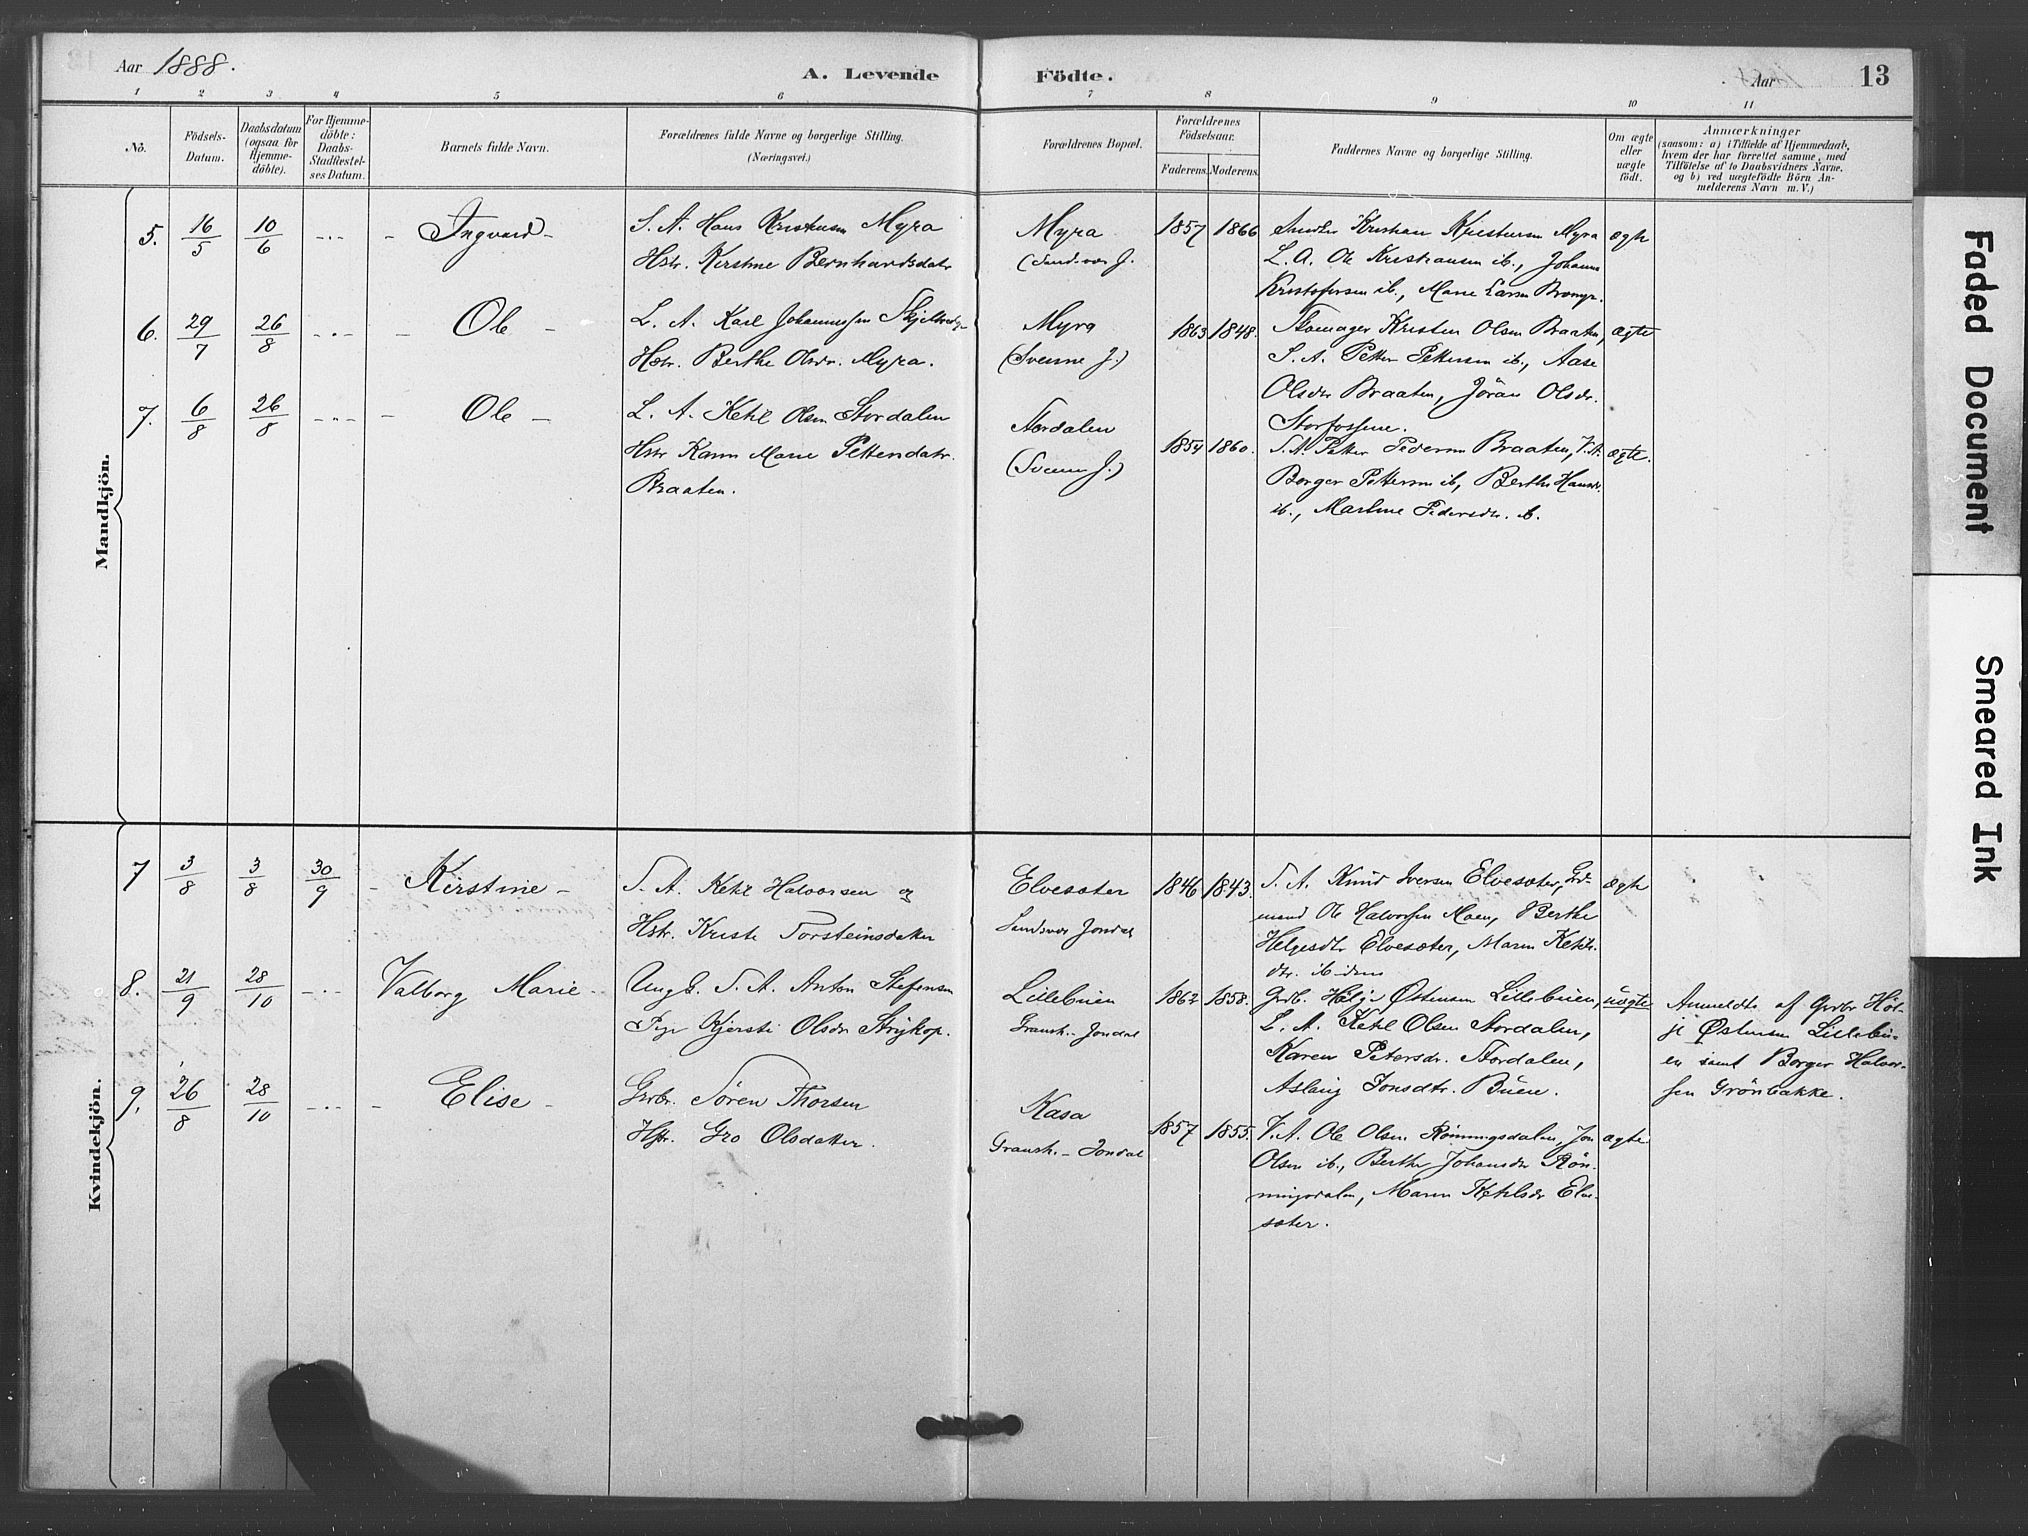 Aar 1888.
A. Levende
Födte.
Aar
13
1 2 3 4 5 6 7 8 9 10 11
No.
Födsels-
Datum.
Daabsdatum
(ogsaa for
Hjemme-
döbte).
For Hjemme-
döbte:
Daabs-
Stadfæstel-
ses Datum.
Barnets fulde Navn.
Forældrenes fulde Navne og borgerlige Stilling.
(Næringsvei.)
Forældrenes Bopæl.
Forældrenes
Födselsaar.
Faderens. Moderens.
Faddernes Navne og borgerlige Stilling.
Om ægte
eller
uægte
födt.
Anmærkninger
(saasom: a) i Tilfælde af Hjemmedaab,
hvem der har forrettet samme, med
Tilföielse af to Daabsvidners Navne,
og b) ved uægtefödte Börn An-
melderens Navn m. V.)
Mandkjön.
5. 16/5 10/6 -"- - Ingvard -
S. A. Hans Kristensen Myra
Hstr. Kirstine Bernhardsdatr
Myra
(Sandsvær J.
1857 1866
Smeder Kristian Kristensen Myra
L. A. Ole Kristiansen ib., Johannes
Kristofersen ib., Marie Larsen
ægte
6. 29/7 26/8 -"- - Ole -
L. A. Karl Johannessen
Hstr. Berthe Olsdr. Myra.
Myra
(Svenne J.)
1863 1848.
Skomager Kristen Olsen Braaten,
S. A. Petter Pettersen ib., Aase
Olsdr Braaten, Jöran Olsdr.
Storfossene.
ægte
7. 6/8 26/8 -"- - Ole -
L. A. Ketil Olsen Stordalen
Hstr Karen Marie Pettersdatr.
Braaten.
Stordalen
(Svenne J.)
1854 1860.
S. A. Petter Pedersen Braaten, V. A.
Borger Pettersen ib, Berthe Hansdr.
ib., Martine Pedersdr. ib.
ægte.
Kvindekjön.
7 3/8 3/8 30/9 - Kirstine -
S. A. Ketil Halvorsen og
Hstr. Kirsti Torsteinsdatter
Elvesæter
Sandsvær Jondal
1846 1843.
S. A. Knud Iversen Elvesæter, Grd-
mand Ole Halvorsen Moen, Berthe
Helgesdtr Elvesæter, Maren Ketils-
dtr. ibidem
ægte
8. 21/9 28/10 -"- Valborg Marie -
Ungk. S. A. Anton Stefensen
Pige Kjersti Olsdr Strykop.
Lillebuen
Gransh. - Jondal
1862 1858.
Grdb. Helje Østensen Lillebuen,
L. A. Ketil Olsen Stordalen,
Karen Petersdr. Stordalen,
Aslaug Jonsdtr. Buen.
uægte
Anmeldte af Grdbr Hel-
je Østensen Lillebu-
en samt Borger Halvor-
sen Grönbakke.
9. 26/8 28/10 -"- - Elise -
Grdbr. Sören Thorsen
Hstr. Gro Olsdatter.
Kasa
Gransh. - Jondal
1857 1855.
V. A. Ole Olsen Rönningsdalen, Jon
Olsen ib., Berthe Johansdr Rön-
ningsdalen, Maren Ketilsdr Elve-
sæter.
ægte
Faded Document
Smeared Ink